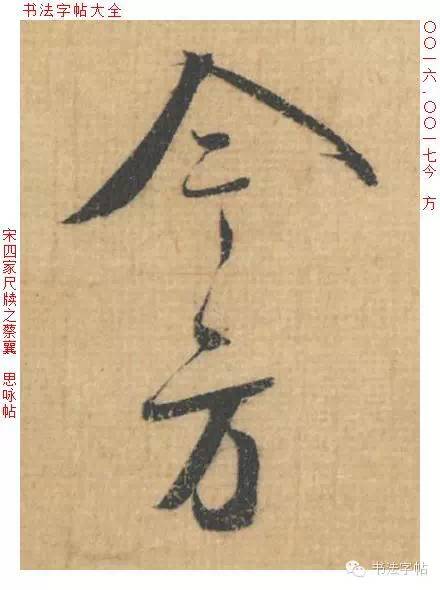 书法字帖大全
〇〇一六-〇〇一七今 方
今方
宋四家尺牍之蔡襄 思咏帖
书法字帖